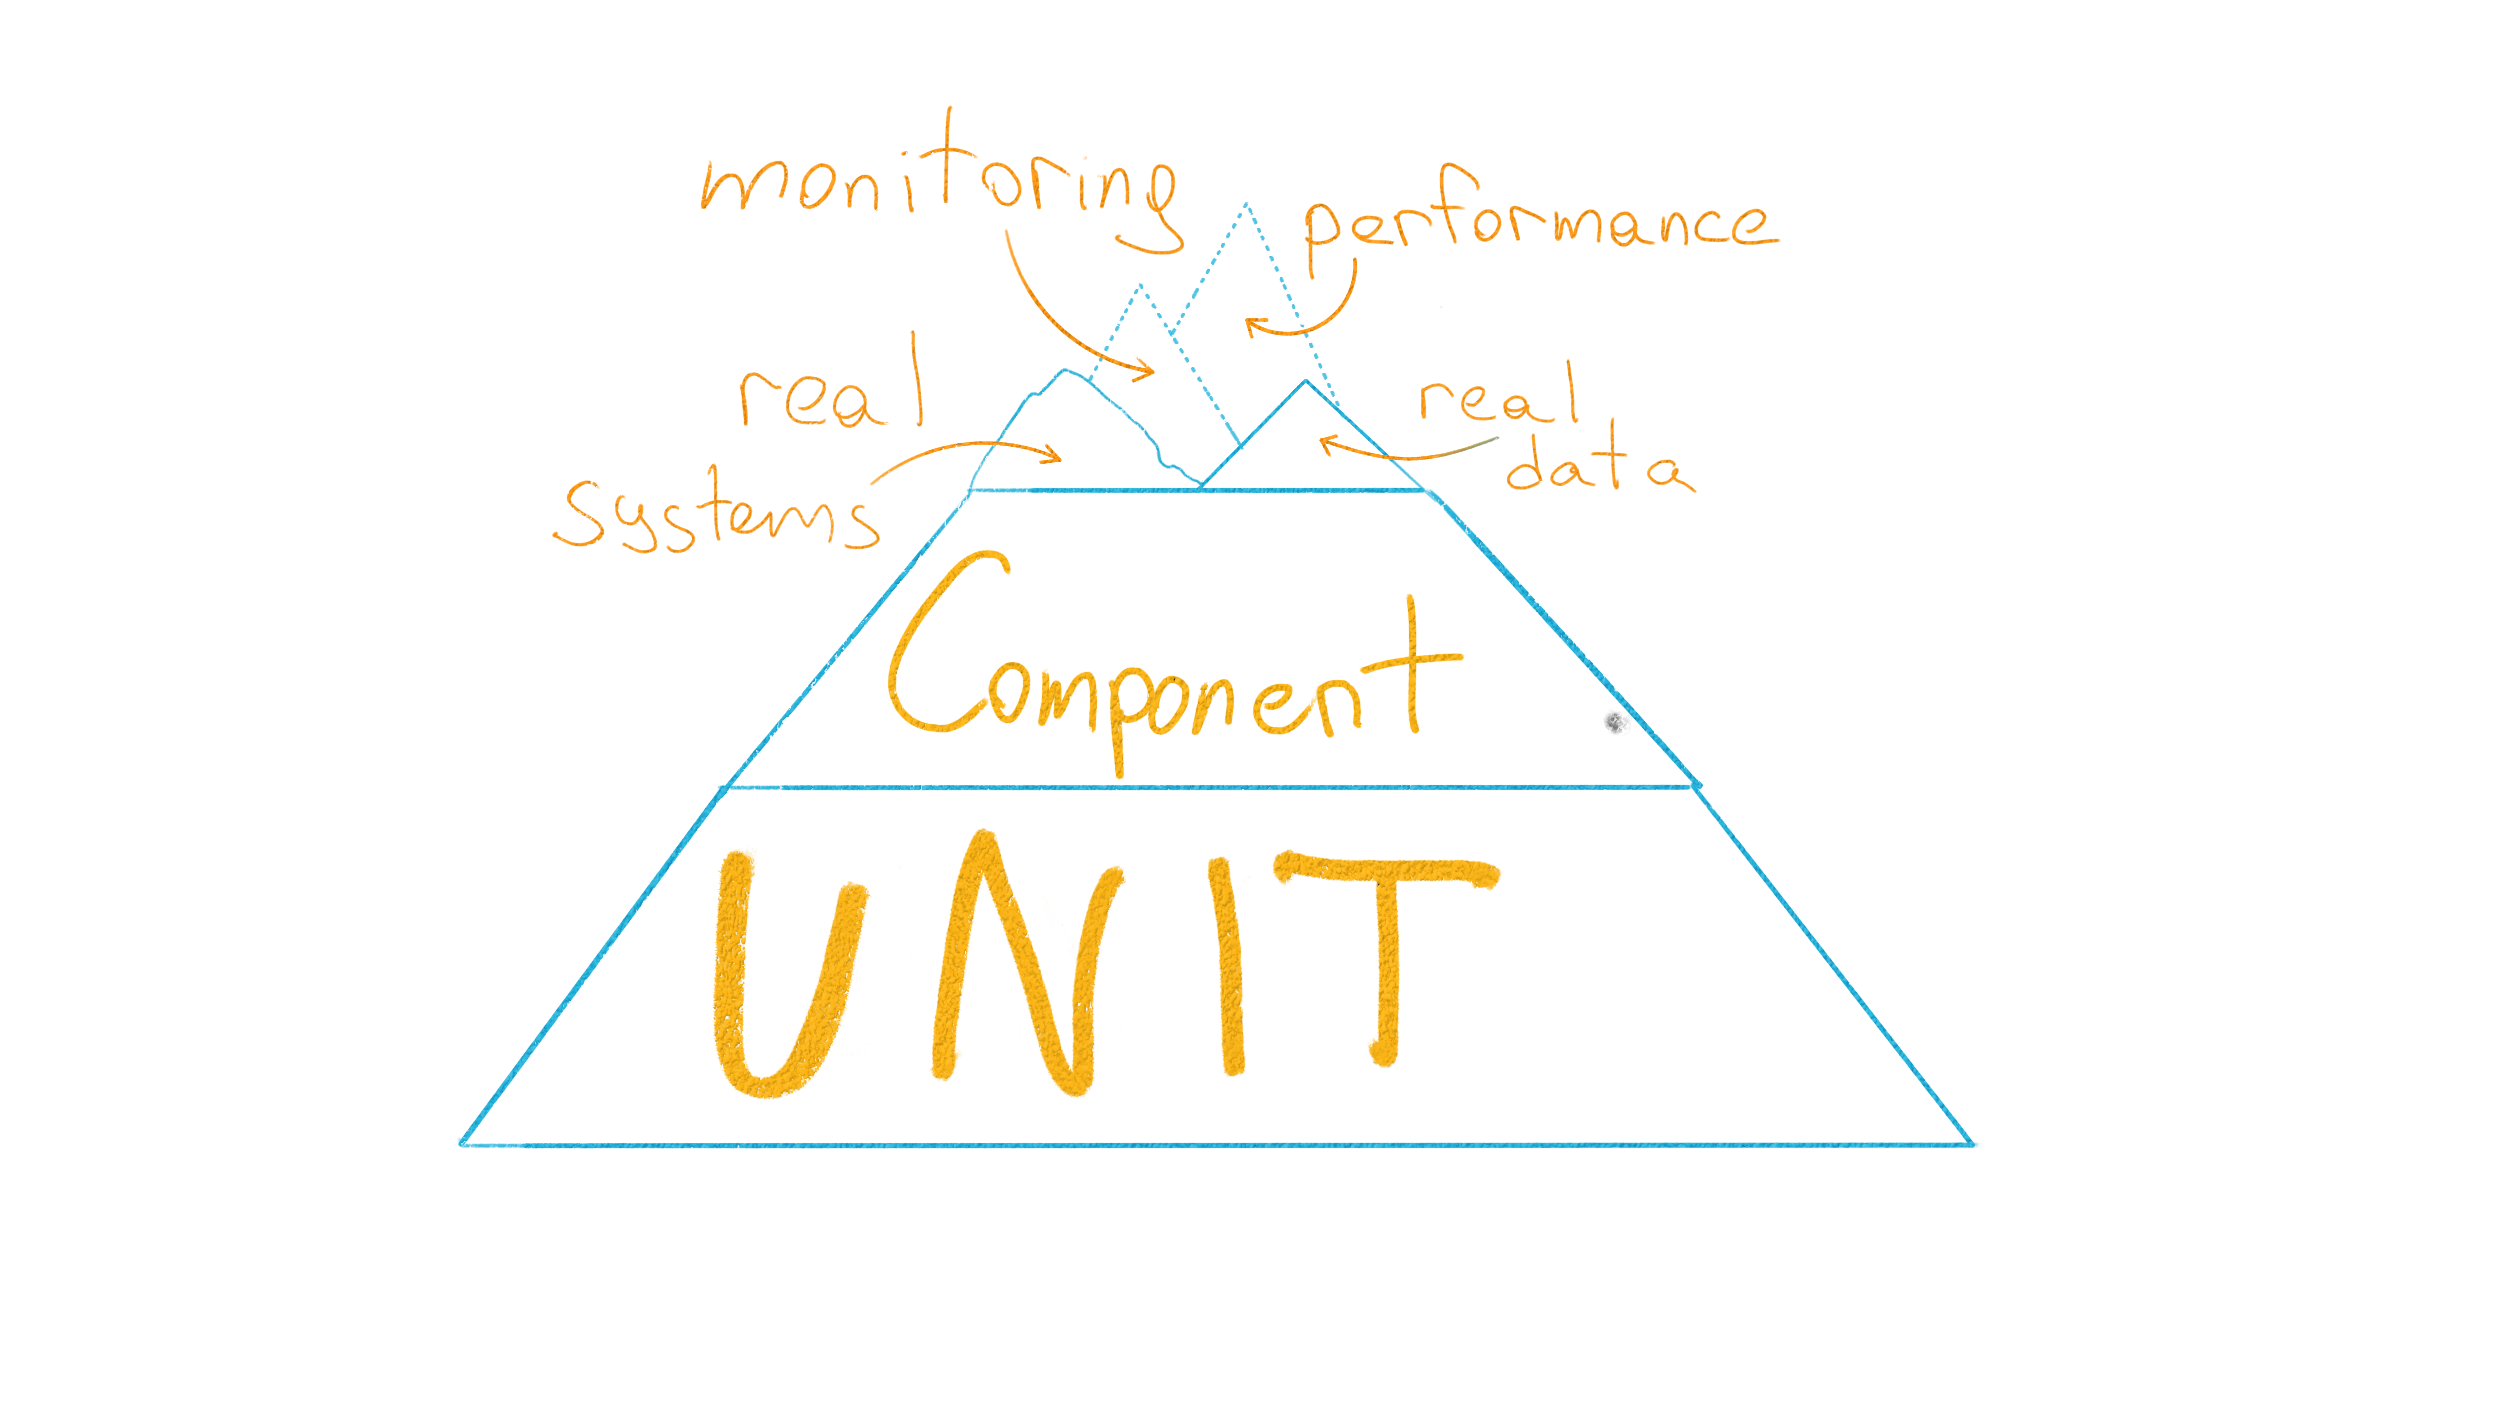 monitoring
performance
real
systems
real
data
Component
UNIT